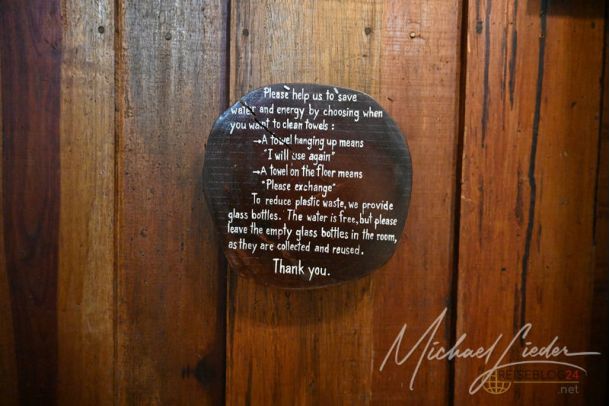 Please help us to save
water and energy by choosing when
you want to clean towels :
→A towel hanging up means
"I will use again"
→A towel on the floor means
"Please exchange"
To reduce plastic waste, we provide
glass bottles. The water is free, but please
leave the empty glass bottles in the room,
as they are collected and reused.
Thank you.
Michael Lieder
REISEBLOG24
.net